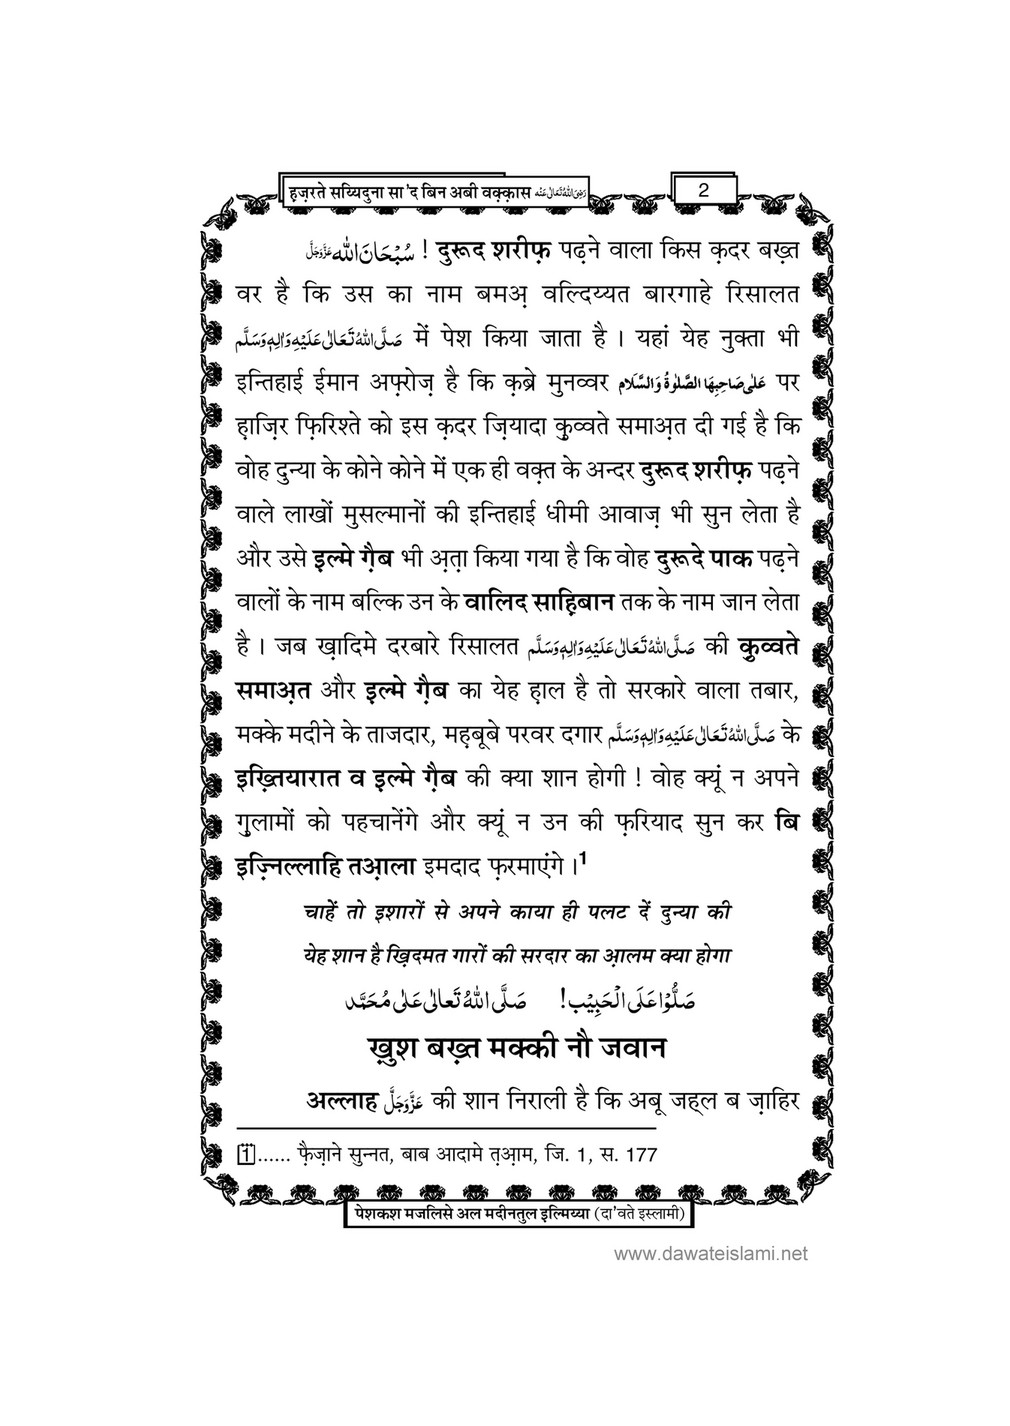 ह़ज़रते सय्यिदुना सा'द बिन अबी वक़्क़ास رَضِیَ اللّٰہُ تَعَالٰی عَنْہ 2
سُبْحَانَ اللّٰه عَزَّوَجَلَّ ! दुरूद शरीफ़ पढ़ने वाला किस क़दर बख़्त
वर है कि उस का नाम बमअ़ वल्दिय्यत बारगाहे रिसालत
صَلَّی اللّٰہُ تَعَالٰی عَلَیْہِ وَاٰلِہٖ وَسَلَّم में पेश किया जाता है । यहां येह नुक्ता भी
इन्तिहाई ईमान अफ़्रोज़ है कि क़ब्रे मुनव्वर عَلٰی صَاحِبِھَا الصَّلٰوۃُ وَالسَّلَام पर
ह़ाज़िर फ़िरिश्ते को इस क़दर ज़ियादा क़ुव्वते समाअ़त दी गई है कि
वोह दुन्या के कोने कोने में एक ही वक़्त के अन्दर दुरूद शरीफ़ पढ़ने
वाले लाखों मुसल्मानों की इन्तिहाई धीमी आवाज़ भी सुन लेता है
और उसे इल्मे ग़ैब भी अ़त़ा किया गया है कि वोह दुरूदे पाक पढ़ने
वालों के नाम बल्कि उन के वालिद साह़िबान तक के नाम जान लेता
है । जब ख़ादिमे दरबारे रिसालत صَلَّی اللّٰہُ تَعَالٰی عَلَیْہِ وَاٰلِہٖ وَسَلَّم की क़ुव्वते
समाअ़त और इल्मे ग़ैब का येह ह़ाल है तो सरकारे वाला तबार,
मक्के मदीने के ताजदार, मह़बूबे परवर दगार صَلَّی اللّٰہُ تَعَالٰی عَلَیْہِ وَاٰلِہٖ وَسَلَّم के
इख़्तियारात व इल्मे ग़ैब की क्या शान होगी ! वोह क्यूं न अपने
ग़ुलामों को पहचानेंगे और क्यूं न उन की फ़रियाद सुन कर बि
इज़्निल्लाहि तआ़ला इमदाद फ़रमाएंगे ।1
चाहें तो इशारों से अपने काया ही पलट दें दुन्या की
येह शान है ख़िदमत गारों की सरदार का आ़लम क्या होगा
صَلُّوْا عَلَی الْحَبِیْب! صَلَّی اللّٰہُ تَعَالٰی عَلٰی مُحَمَّد
ख़ुश बख़्त मक्की नौ जवान
अल्लाह عَزَّوَجَلَّ की शान निराली है कि अबू जह्ल ब ज़ाहिर
1...... फ़ैज़ाने सुन्नत, बाब आदामे त़आ़म, जि. 1, स. 177
पेशकश मजलिसे अल मदीनतुल इल्मिय्या (दा'वते इस्लामी)
www.dawateislami.net